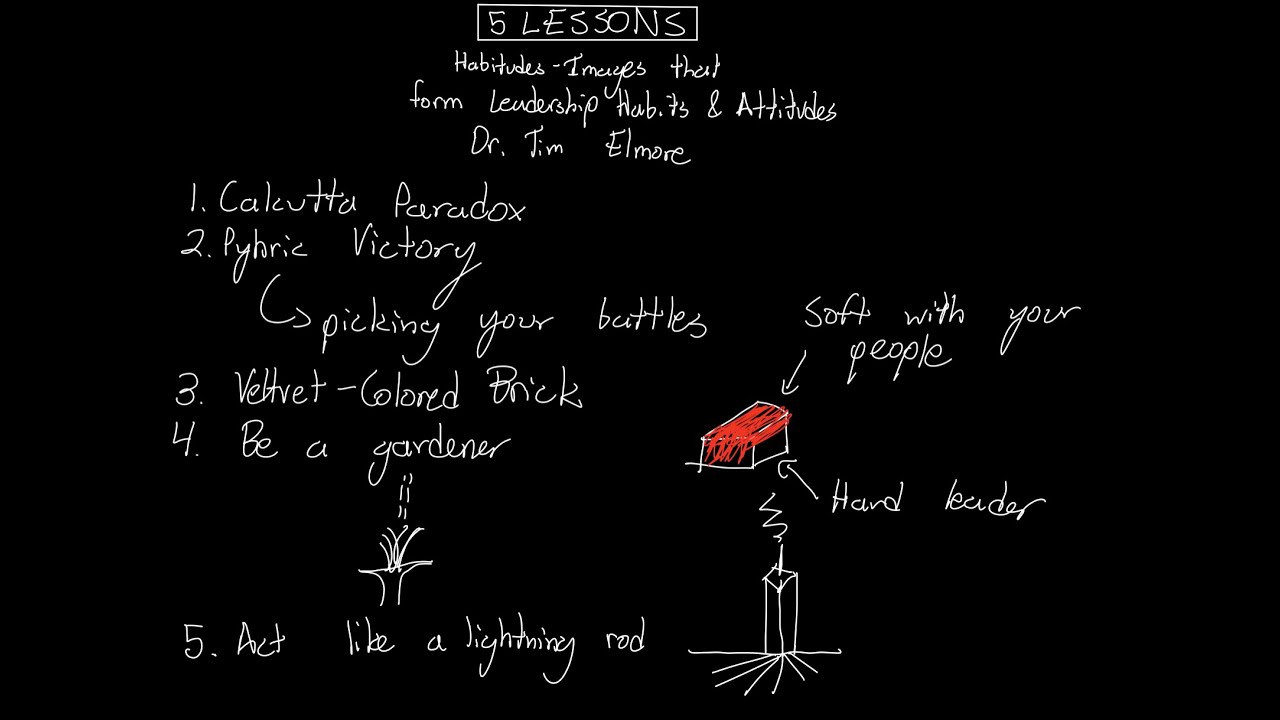 5 LESSONS
Habitudes - Images that
form Leadership Habits & Attitudes
Dr. Tim Elmore
1. Calcutta Paradox
2. Pyhric Victory
picking your battles
Soft with your
people
3. Veltvet-Colored Brick
4. Be a gardener
Hard leader
5. Act like a lightning rod